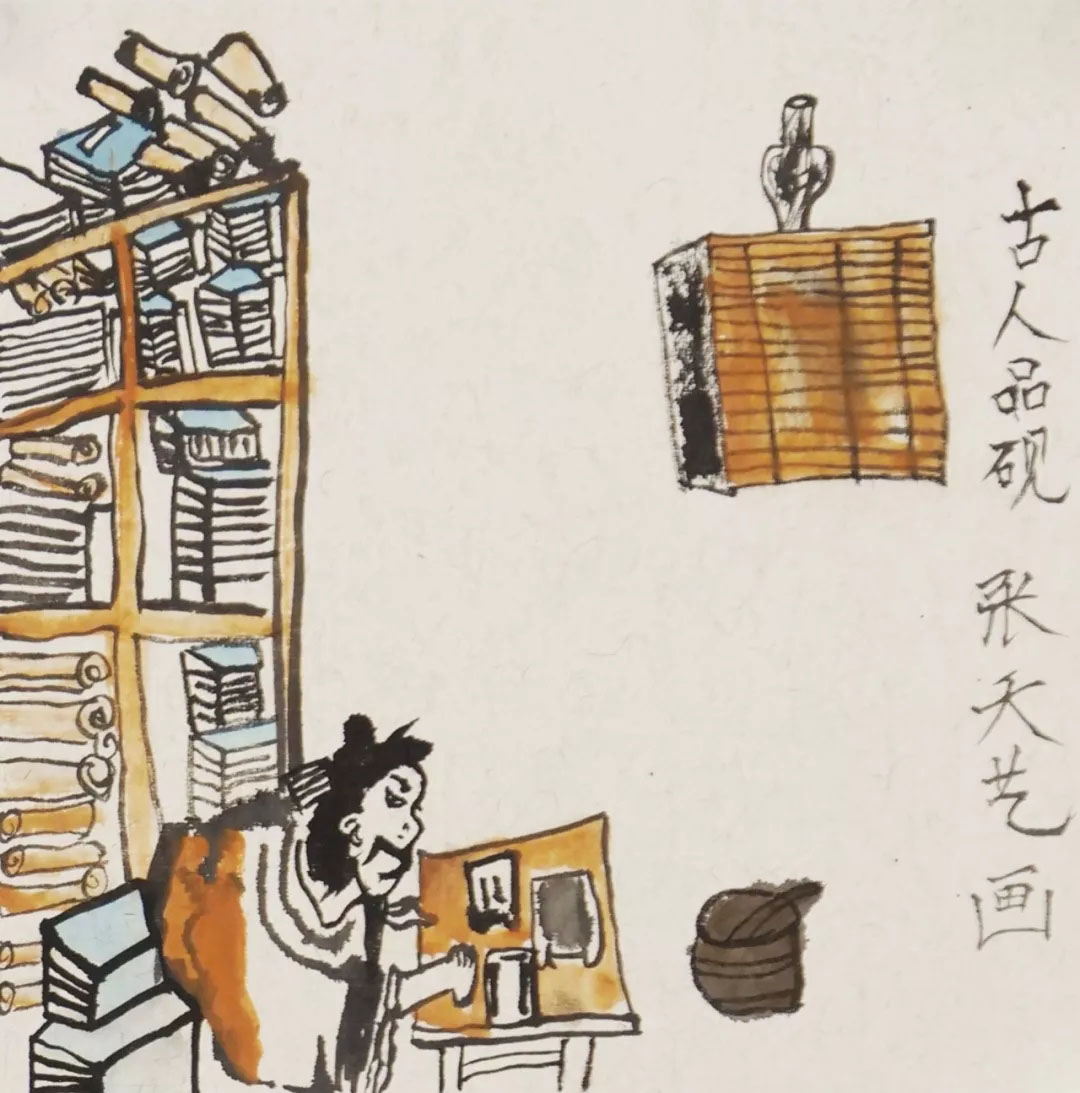 古人品砚 张天艺画